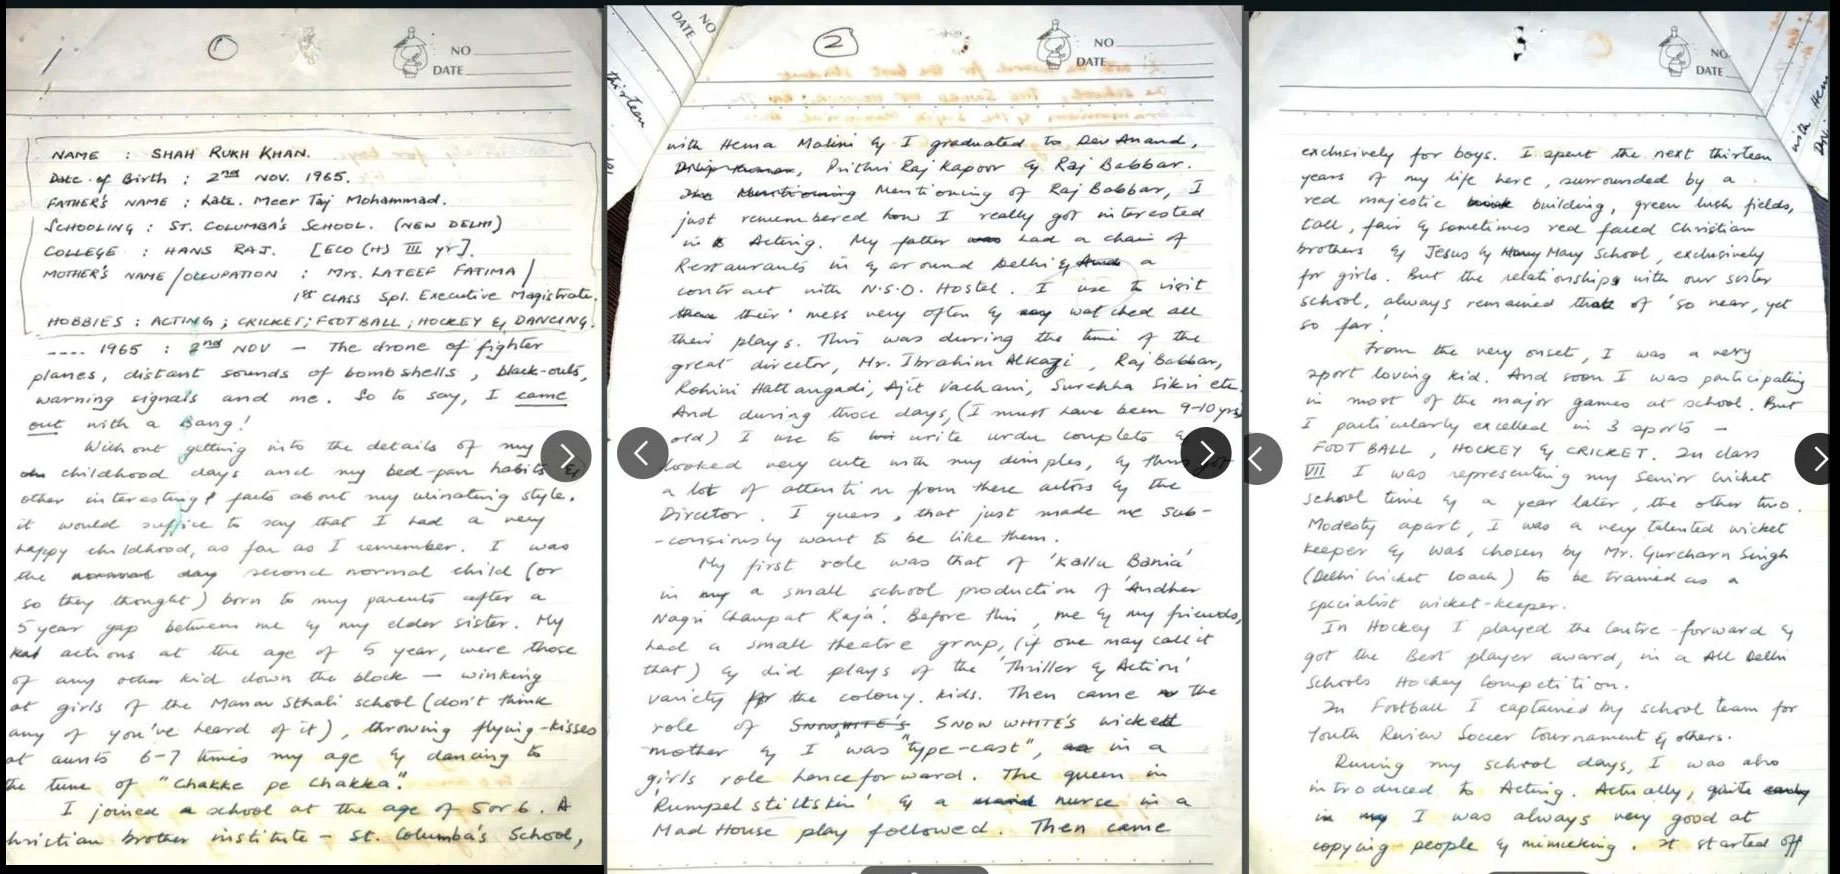 1
NO
DATE
NAME : SHAH RUKH KHAN.
Date of Birth : 2nd NOV. 1965.
FATHER'S NAME : Late. Meer Taj Mohammad.
SCHOOLING : ST. COLUMBA'S SCHOOL. (NEW DELHI)
COLLEGE : HANS RAJ. [ECO (H) III yr].
MOTHER'S NAME/OCCUPATION : Mrs. LATEEF FATIMA/
1st CLASS Spl. Executive Magistrate.
HOBBIES : ACTING; CRICKET; FOOTBALL; HOCKEY & DANCING.
.... 1965 : 2nd NOV — The drone of fighter
planes, distant sounds of bombshells, black-outs,
warning signals and me. So to say, I came
out with a Bang!
Without getting into the details of my
childhood days and my bed-pan habits &
other interesting facts about my urinating style.
it would suffice to say that I had a very
happy childhood, as far as I remember. I was
the normal day second normal child (or
so they thought) born to my parents after a
5 year gap between me & my elder sister. My
actions at the age of 5 year, were those
of any other kid down the block — winking
at girls of the Manav Sthali school (don't think
any of you've heard of it), throwing flying-kisses
at aunts 6-7 times my age & dancing to
the tune of "Chakke pe Chakka".
I joined a school at the age of 5 or 6. A
hristian brother institute — St. Columba's School,
NO
DATE
thirteen
2
NO
DATE
with Hema Malini & I graduated to Dev Anand,
Dilip Kumar, Prithvi Raj Kapoor & Raj Babbar.
The Mentioning Mentioning of Raj Babbar, I
just remembered how I really got interested
in Acting. My father was had a chain of
Restaurants in & around Delhi & And a
contract with N.S.D. Hostel. I use to visit
their mess very often & watched all
their plays. This was durring the time of the
great director, Mr. Ibrahim Alkazi, Raj Babbar,
Rohini Hattangadi, Ajit Vachani, Surekha Sikri etc.
And during those days, (I must have been 9-10 yrs
old) I use to write urdu couplets &
looked very cute with my dimples, & thus got
a lot of attention from these actors & the
Director. I guess, that just made me sub-
-consiously want to be like them.
My first role was that of 'Kallu Bania'
in my a small school production of 'Andher
Nagri Chaupat Raja'. Before this, me & my friends,
had a small theatre group, (if one may call it
that) & did plays of the 'Thriller & Action'
variety for the colony kids. Then came the
role of SNOWWHITE'S SNOW WHITE'S wicked
mother & I was "type-cast", as in a
girls role henceforward. The queen in
'Rumpel stiltskin' & a nurse in a
Mad House play followed. Then came
NO
DATE
with Hem
exclusively for boys. I spent the next thirteen
years of my life here, surrounded by a
red majestic brick building, green lush fields,
tall, fair & sometimes red faced Christian
brothers & Jesus & Mary School, exclusively
for girls. But the relationships with our sister
school, always remained that of 'so near, yet
so far'.
From the very onset, I was a very
sport loving kid. And soon I was participating
in most of the major games at school. But
I particularly excelled in 3 sports —
FOOTBALL, HOCKEY & CRICKET. In class
VII I was representing my Senior Cricket
school team & a year later, the other two.
Modesty apart, I was a very talented wicket
keeper & was chosen by Mr. Gurcharn Singh
(Delhi Cricket Coach) to be trained as a
specialist wicket-keeper.
In Hockey I played the Centre-forward &
got the Best player award, in a All Delhi
Schools Hockey Competition.
In Football I captained by school team for
Youth Review Soccer tournament & others.
During my school days, I was also
introduced to Acting. Actually, quite early
in my I was always very good at
copying people & mimicking. It started off